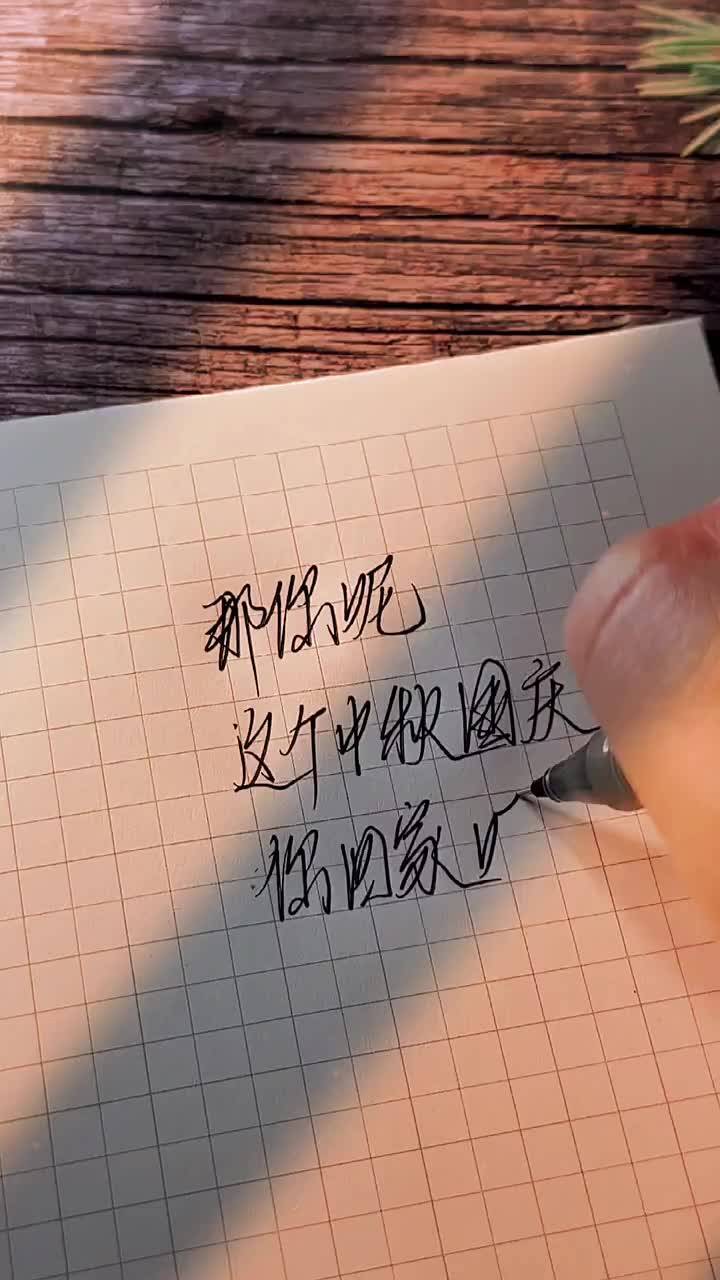 那你呢
这个中秋国庆
你回家